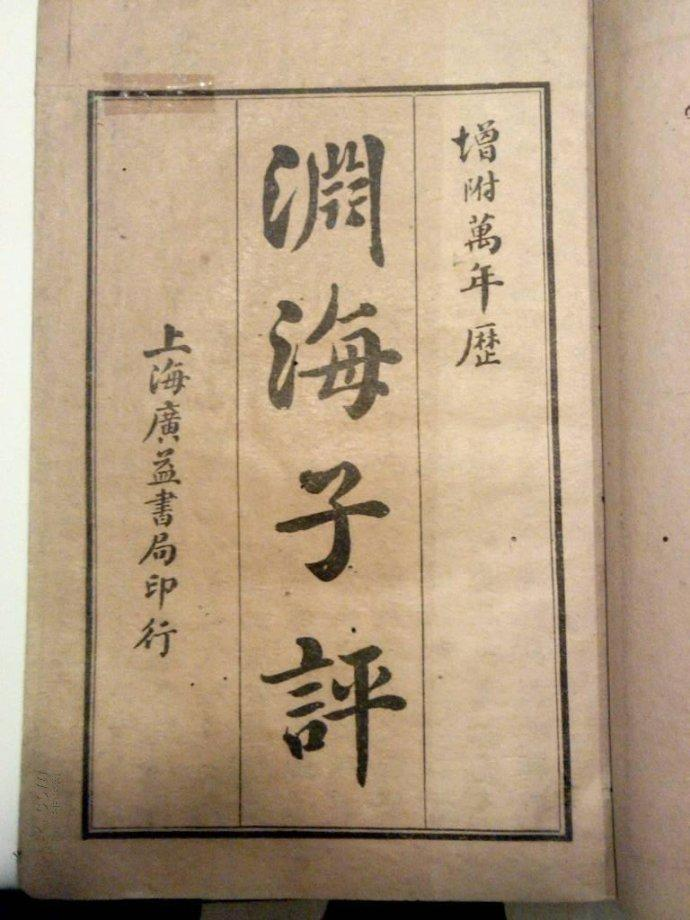 增附萬年歴
淵海子評
上海廣益書局印行